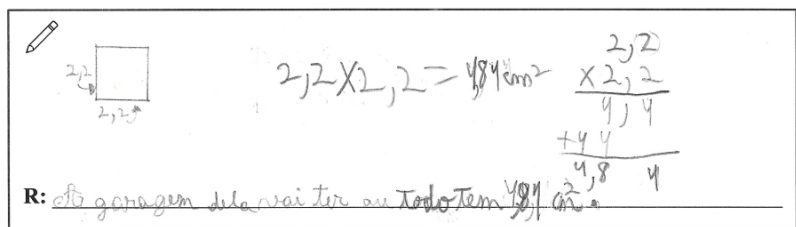 2,2
2,2
2,2x2,2=4,84cm²
2,2
x2,2
4,4
+44
4,84
R: A garagem dela vai ter au todo tem 4,84 cm².